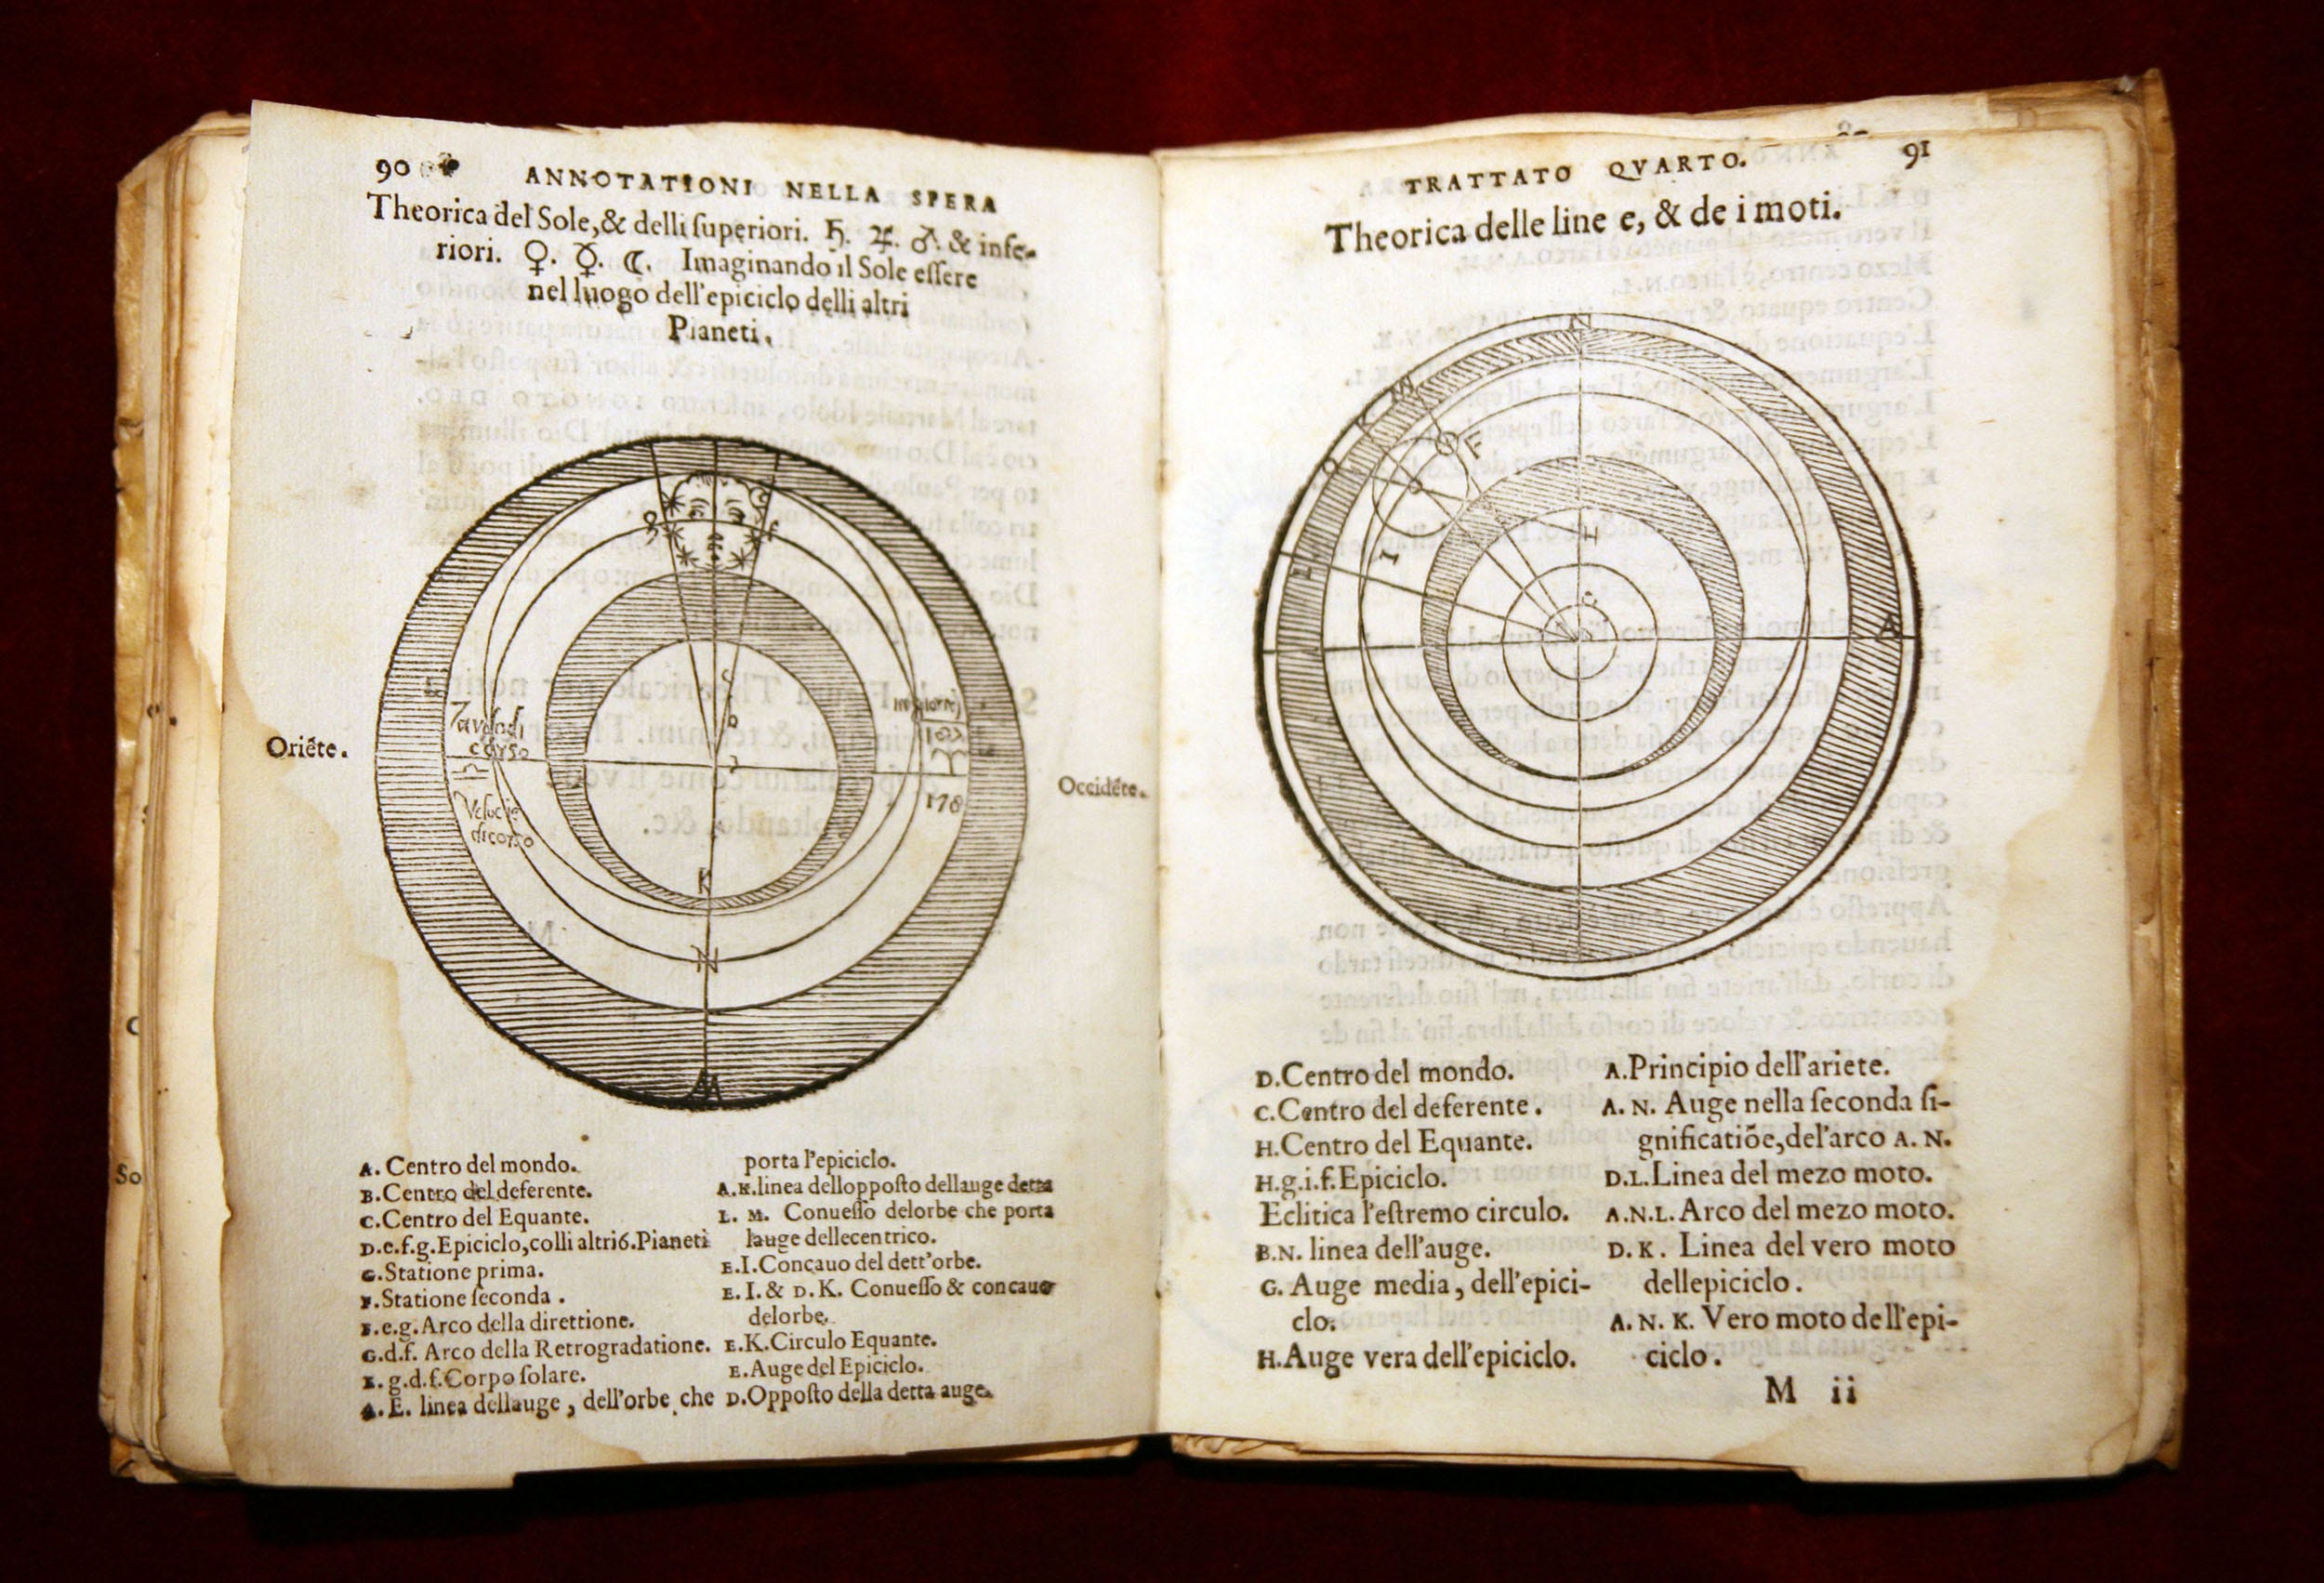 90
ANNOTATIONI NELLA SPERA
Theorica del Sole,& delli ſuperiori. ♄. ♃. ♂. & infe-
riori. ♀. ☿. ☾. Imaginando il Sole eſſere
nel luogo dell'epiciclo delli altri
Pianeti.
Oriẽte.
Occidẽte.
C
B
K
N
M
178
♎
♈
A. Centro del mondo.
B. Centro del deferente.
C. Centro del Equante.
D.e.f.g. Epiciclo, colli altri 6. Pianeti
G. Statione prima.
F. Statione ſeconda.
F.e.g. Arco della direttione.
G.d.f. Arco della Retrogradatione.
E. g.d.f. Corpo ſolare.
A. E. linea dellauge, dell'orbe che
porta l'epiciclo.
A.K. linea dellopposto dellauge detta
L. M. Conueſſo delorbe che porta
lauge dellecentrico.
E.I. Concauo del dett'orbe.
E. I. & D. K. Conueſſo & concauo
delorbe.
E.K. Circulo Equante.
E. Auge del Epiciclo.
D. Oppoſto della detta auge.
TRATTATO QVARTO.
91
Theorica delle line e, & de i moti.
N
M
F
H
I
C
A
D. Centro del mondo.
C. Centro del deferente.
H. Centro del Equante.
H.g.i.f. Epiciclo.
Eclitica l'eſtremo circulo.
B.N. linea dell'auge.
G. Auge media, dell'epici-
clo.
H. Auge vera dell'epiciclo.
A. Principio dell'ariete.
A. N. Auge nella ſeconda ſi-
gnificatiõe, del'arco A. N.
D.L. Linea del mezo moto.
A.N.L. Arco del mezo moto.
D. K. Linea del vero moto
dellepiciclo.
A. N. K. Vero moto dell'epi-
ciclo.
M ii
So